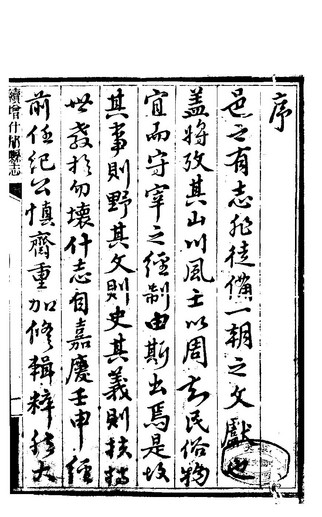 序
邑之有志非徒備一朝之文獻也
盖将攷其山川風土以周知民俗物
宜而守宰之經制由斯出焉是故
其事則野其文則史其義則扶持
世教於勿壞什志自嘉慶壬申經
前任紀公慎齋重加修輯粹然大
續增什邡縣志